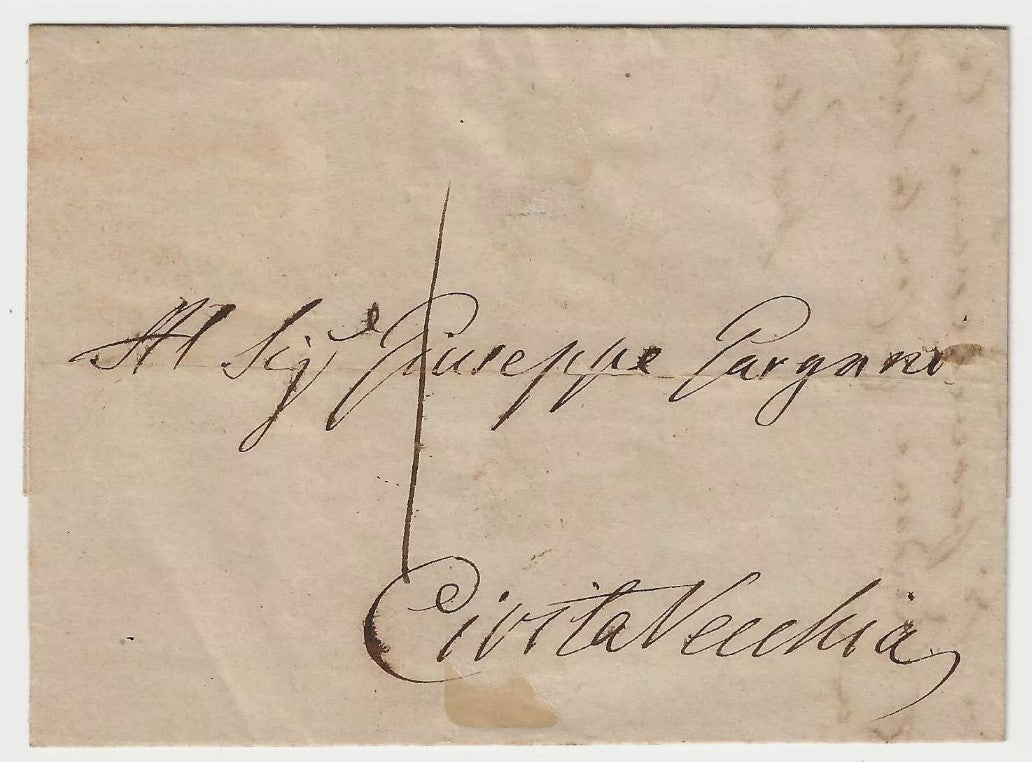 Al Sig.e Giuseppe Pargani
CivitaVecchia